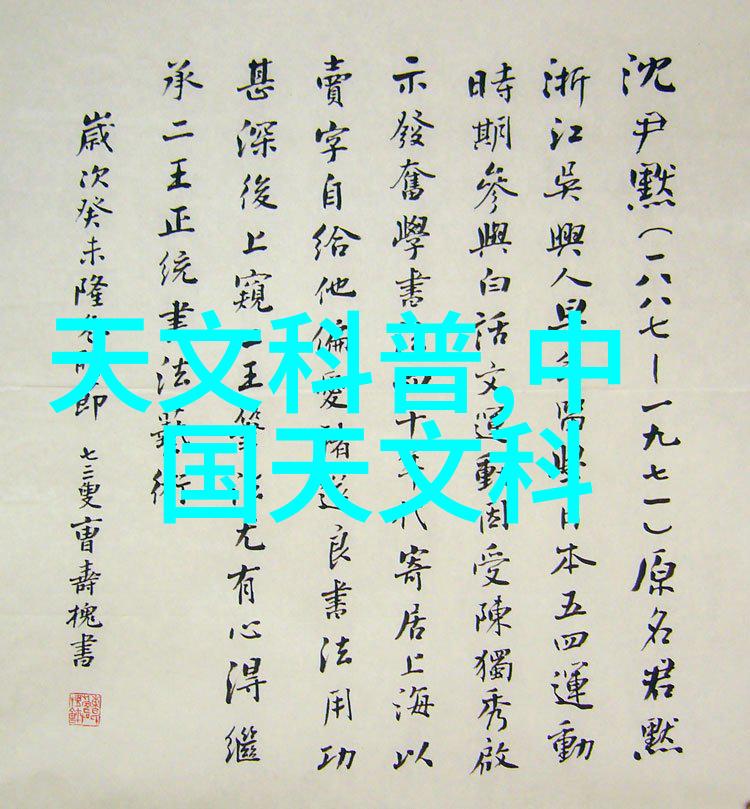 沈尹默（一八八七—一九七一）原名君默
浙江吳興人早日本五四運動
時期參與白話文運動因受陳獨秀啟
示發奮學書法四十年代寄居上海以
賣字自給他偏愛褚遂良書法用功
甚深後上窺二王筆法尤有心得繼
承二王正统書法藝術
歲次癸未隆冬即
七二叟曹壽槐書
天文科普,中
国天文科